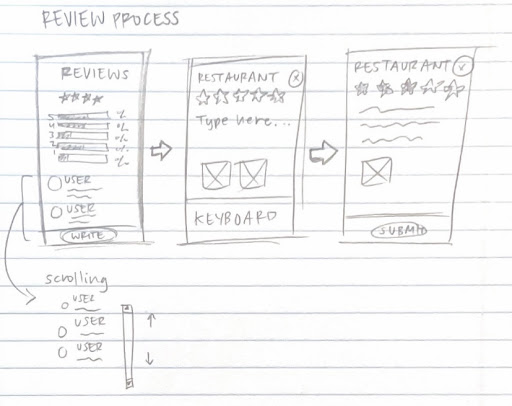 REVIEW PROCESS
REVIEWS
5 %
4 %
3 %
2 %
1 %
USER
USER
WRITE
RESTAURANT X
Type here...
KEYBOARD
RESTAURANT
SUBMIT
scrolling
USER
USER
USER